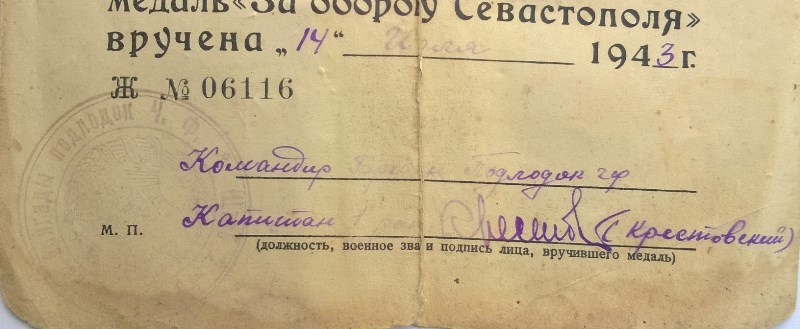 медаль «За оборону Севастополя»
вручена „14“ Июля 1943 г.
Ж № 06116
подлодок Ч. Ф.
Командир Подлодок ЧФ
м. п. Капитан (Крестовский)
(должность, военное зва и подпись лица, вручившего медаль)